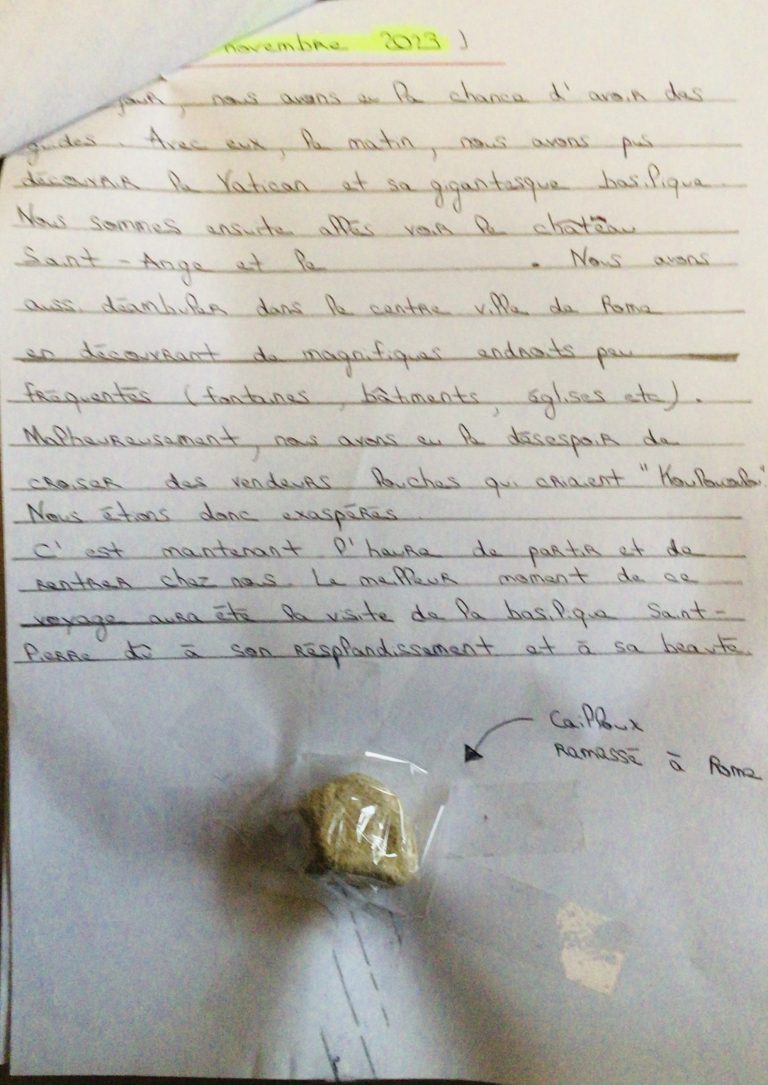 novembre 2023)
jour, nous avons eu la chance d'avoir des
guides. Avec eux, le matin, nous avons pus
découvrir le Vatican et sa gigantesque basilique.
Nous sommes ensuite allés voir le château
Saint-Ange et le        . Nous avons
aussi déambuler dans le centre ville de Rome
en découvrant de magnifiques endroits peu
fréquentés (fontaines, bâtiments, églises etc).
Malheureusement, nous avons eu le désespoir de
croiser des vendeurs louches qui criaient "
Nous étions donc exaspérés.
C'est maintenant l'heure de partir et de
rentrer chez nous. Le meilleur moment de ce
voyage aura été la visite de la basilique Saint-
Pierre dû à son résplandissement et à sa beauté.
Cailloux
ramassé à Rome